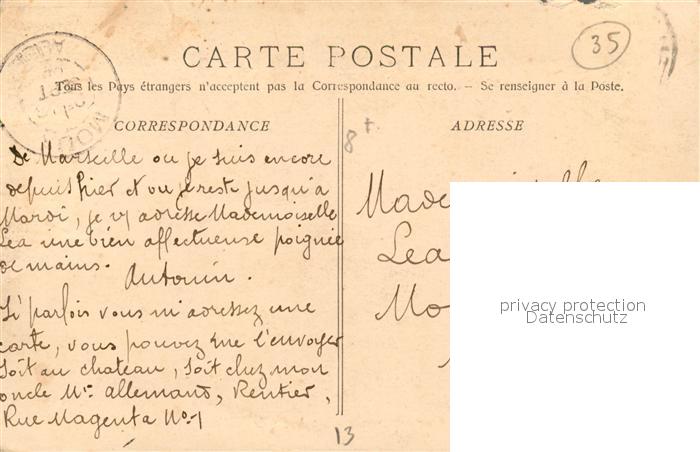 35
CARTE POSTALE
Tous les Pays étrangers n'acceptent pas la Correspondance au recto. — Se renseigner à la Poste.
CORRESPONDANCE
De Marseille ou je suis encore
depuis hier et ou je reste jusqu'à
Mardi, je vs adresse Mademoiselle
Lea une bien affectueuse poignée
de mains.
Antonin.
Si parfois vous m'adressez une
carte, vous pouvez me l'envoyer
soit au chateau, soit chez mon
oncle Mr. Allemand, Rentier,
Rue Magenta No. 1
8+
ADRESSE
Lea
13
privacy protection
Datenschutz